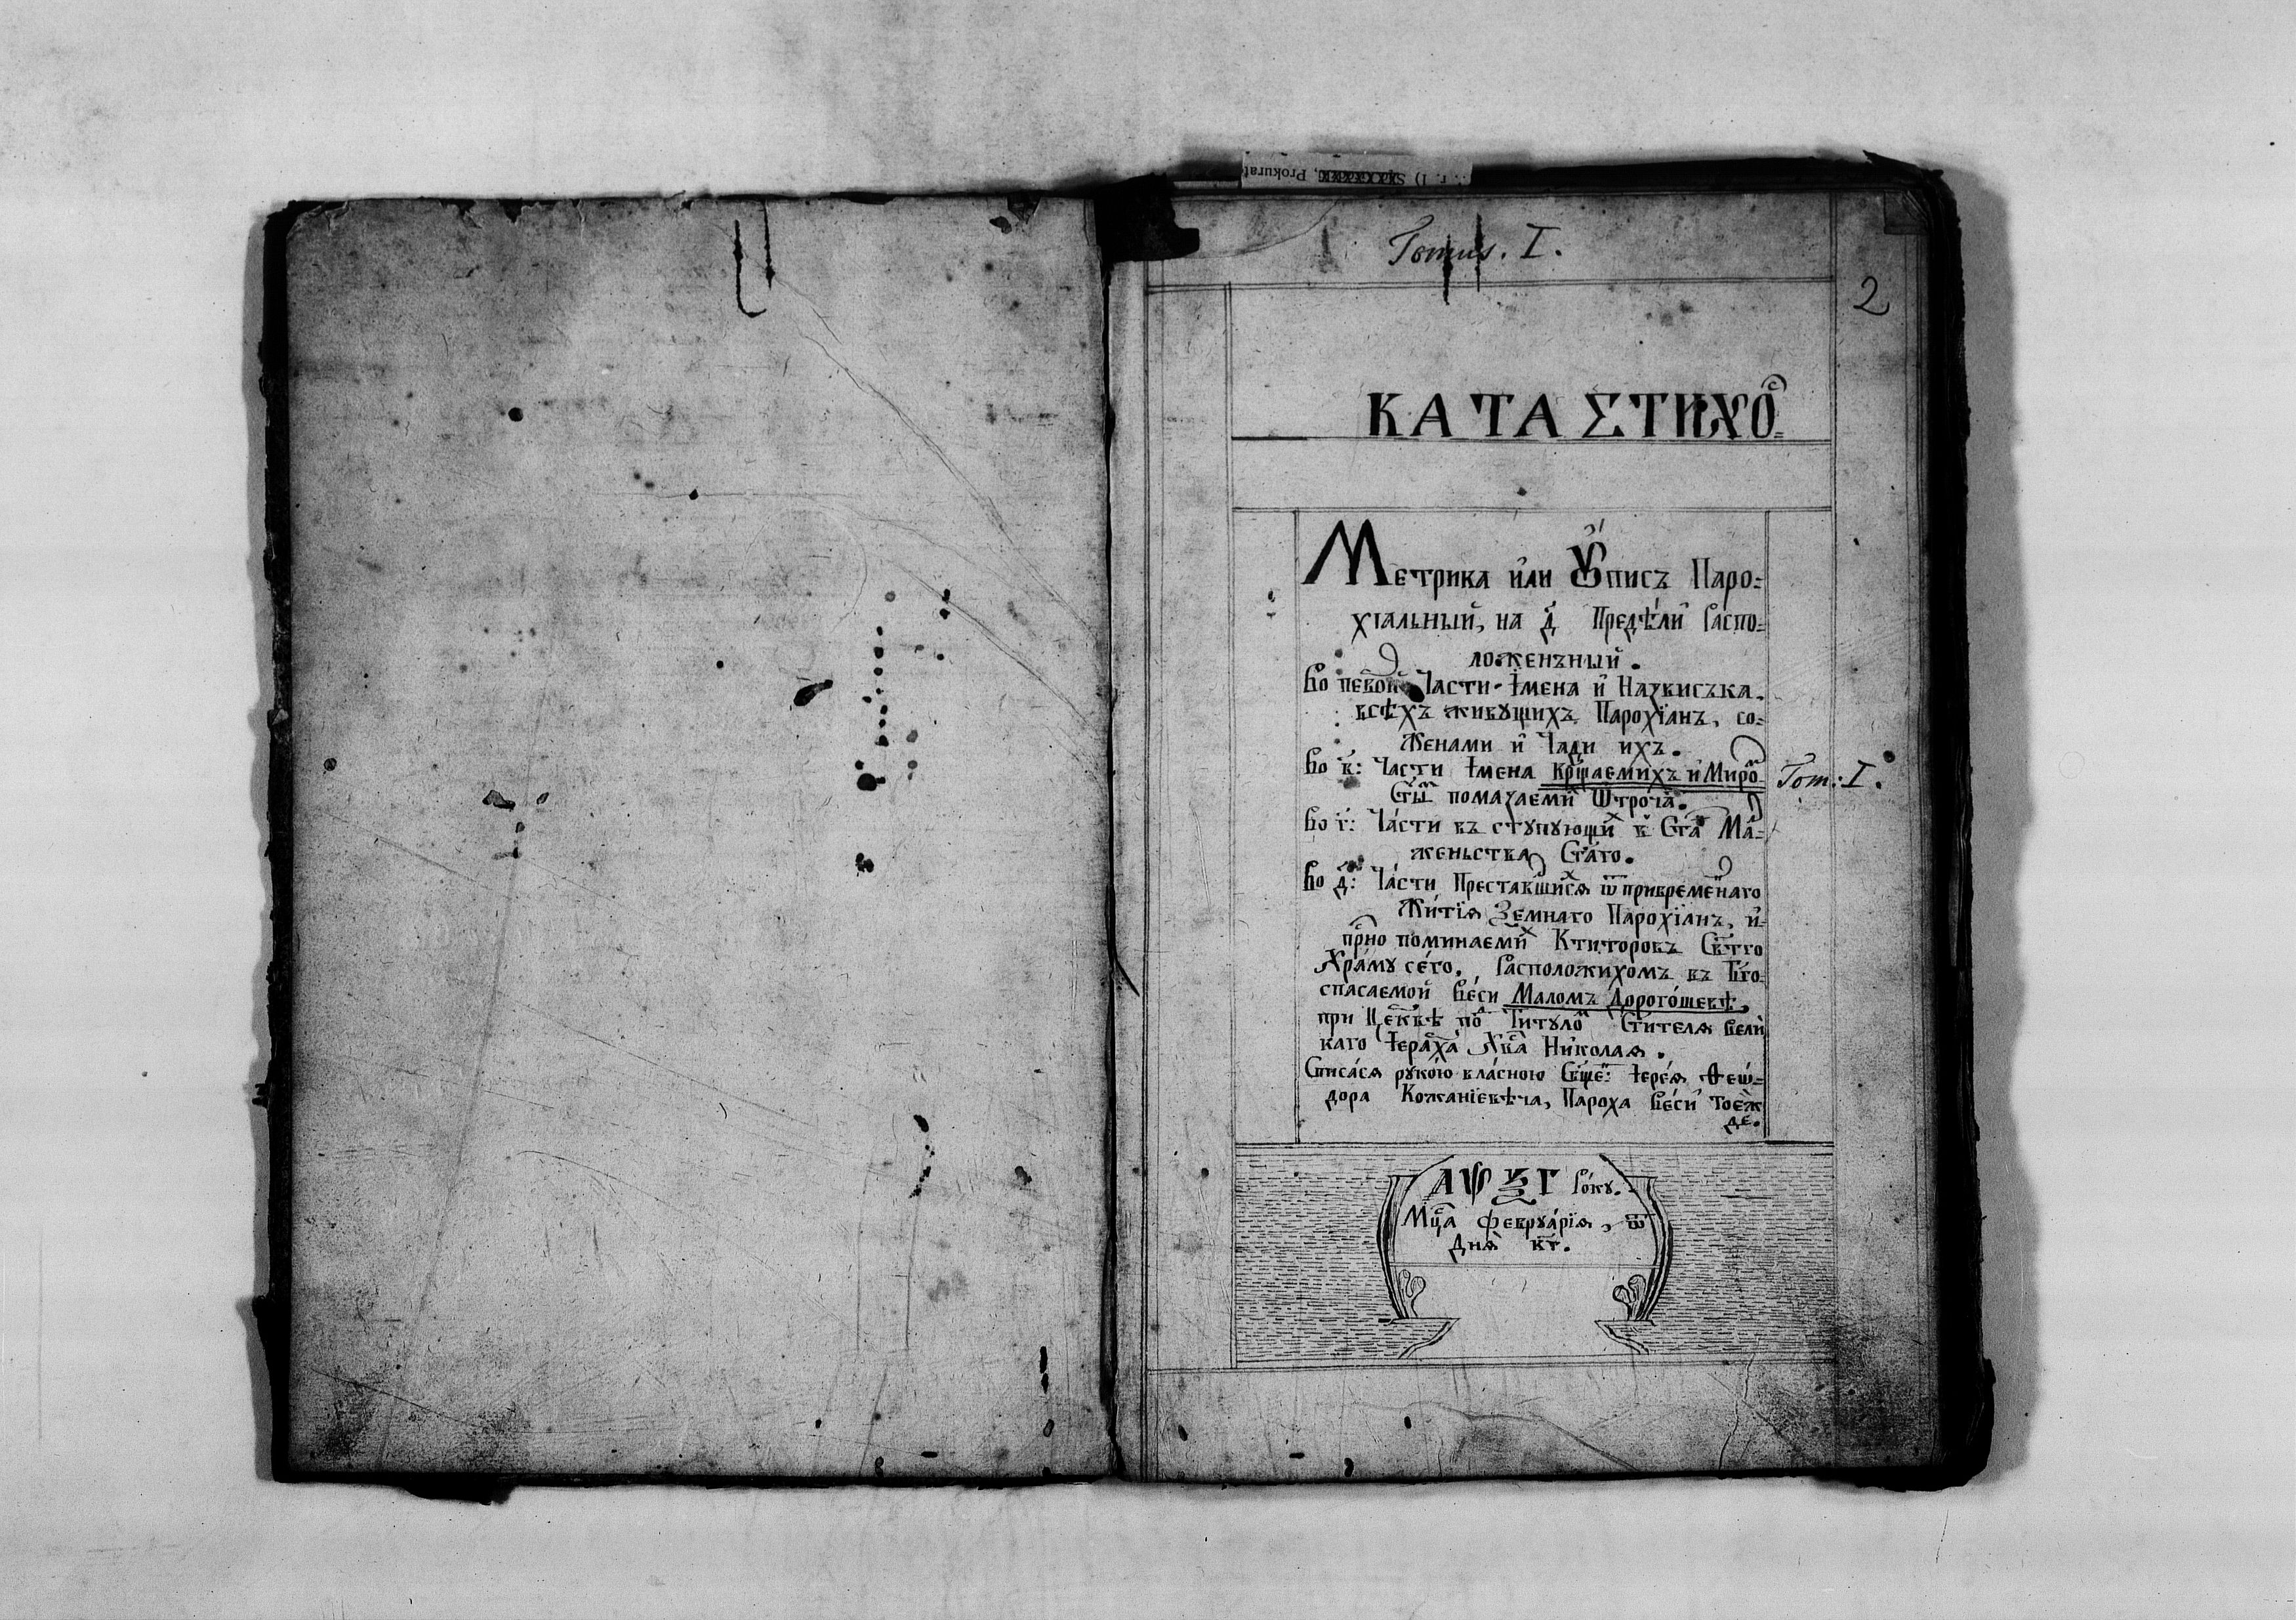 Prokurat
Tomus. I.
2
КАТАΣТИХО҇
Метрика или Ѹпись Паро=
хїалный, на д҃ Предѣли Распо=
ложенъный.
Во пе҇вой Части Імена и Назвиська
всѣхъ живущихъ Парохїанъ, со=
Женами и Чади ихъ.
Во в҃: Части Імена кр҃щаемихъ и Миро҇=
Ст҃ы҇ помазаеми Ѿтроча.
Tom: I.
Во г҃: Части въ ступующи҇ в Ста҇ Ма=
женьства Ст҃аго.
Во д҃: Части Преставшися ѿ привремен҇наго
Житїя Земнаго Парохїанъ, и=
пр҇но поминаеми҇ Ктиторовъ Св҃тго
Храму сего. Расположихомъ въ Бг҃о=
спасаемой Веси Маломъ Дорогошевѣ,
при Це҇квѣ по҇ Титуло҇ Ст҃ителя Вели
каго Іера҇ха Хв҃а Николая.
Списася рукою власною Сщ҃е҇: Іерея Ѳеѡ=
дора Кожанїевѣча, Пароха Веси тоеж
де.
АѰѮГ Року.
Мц҇а Февруарїя, ѿ
Дня кг҃.